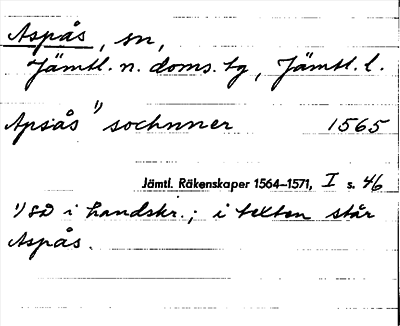 Aspås, sn,
Jämtl. n. doms. tg, Jämtl. l.
Apsås ¹) sochnner 1565
Jämtl. Räkenskaper 1564–1571, I s. 46
¹) så i handskr.; i texten står
Aspås.